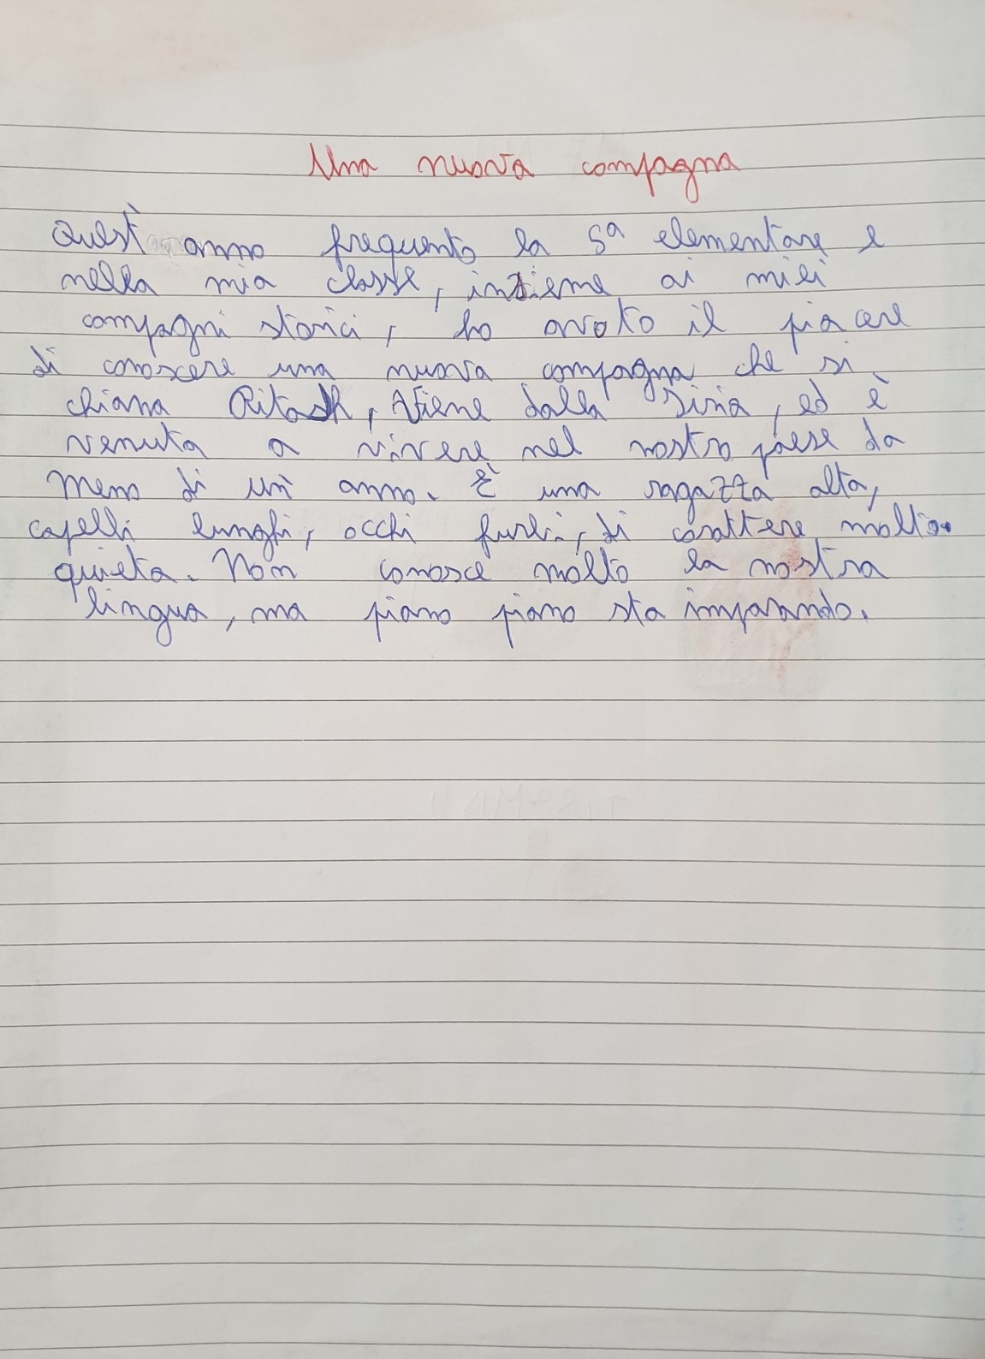 Una nuova compagna
Quest' anno frequento la 5ª elementare e
nella mia classe, insieme ai miei
compagni storici, ho avuto il piacere
di conoscere una nuova compagna che si
chiama, viene dalla Siria, ed è
venuta a vivere nel nostro paese da
meno di un anno. È una ragazza alta,
capelli lunghi, occhi furbi, di carattere molto
quieta. Non conosce molto la nostra
lingua, ma piano piano sta imparando.